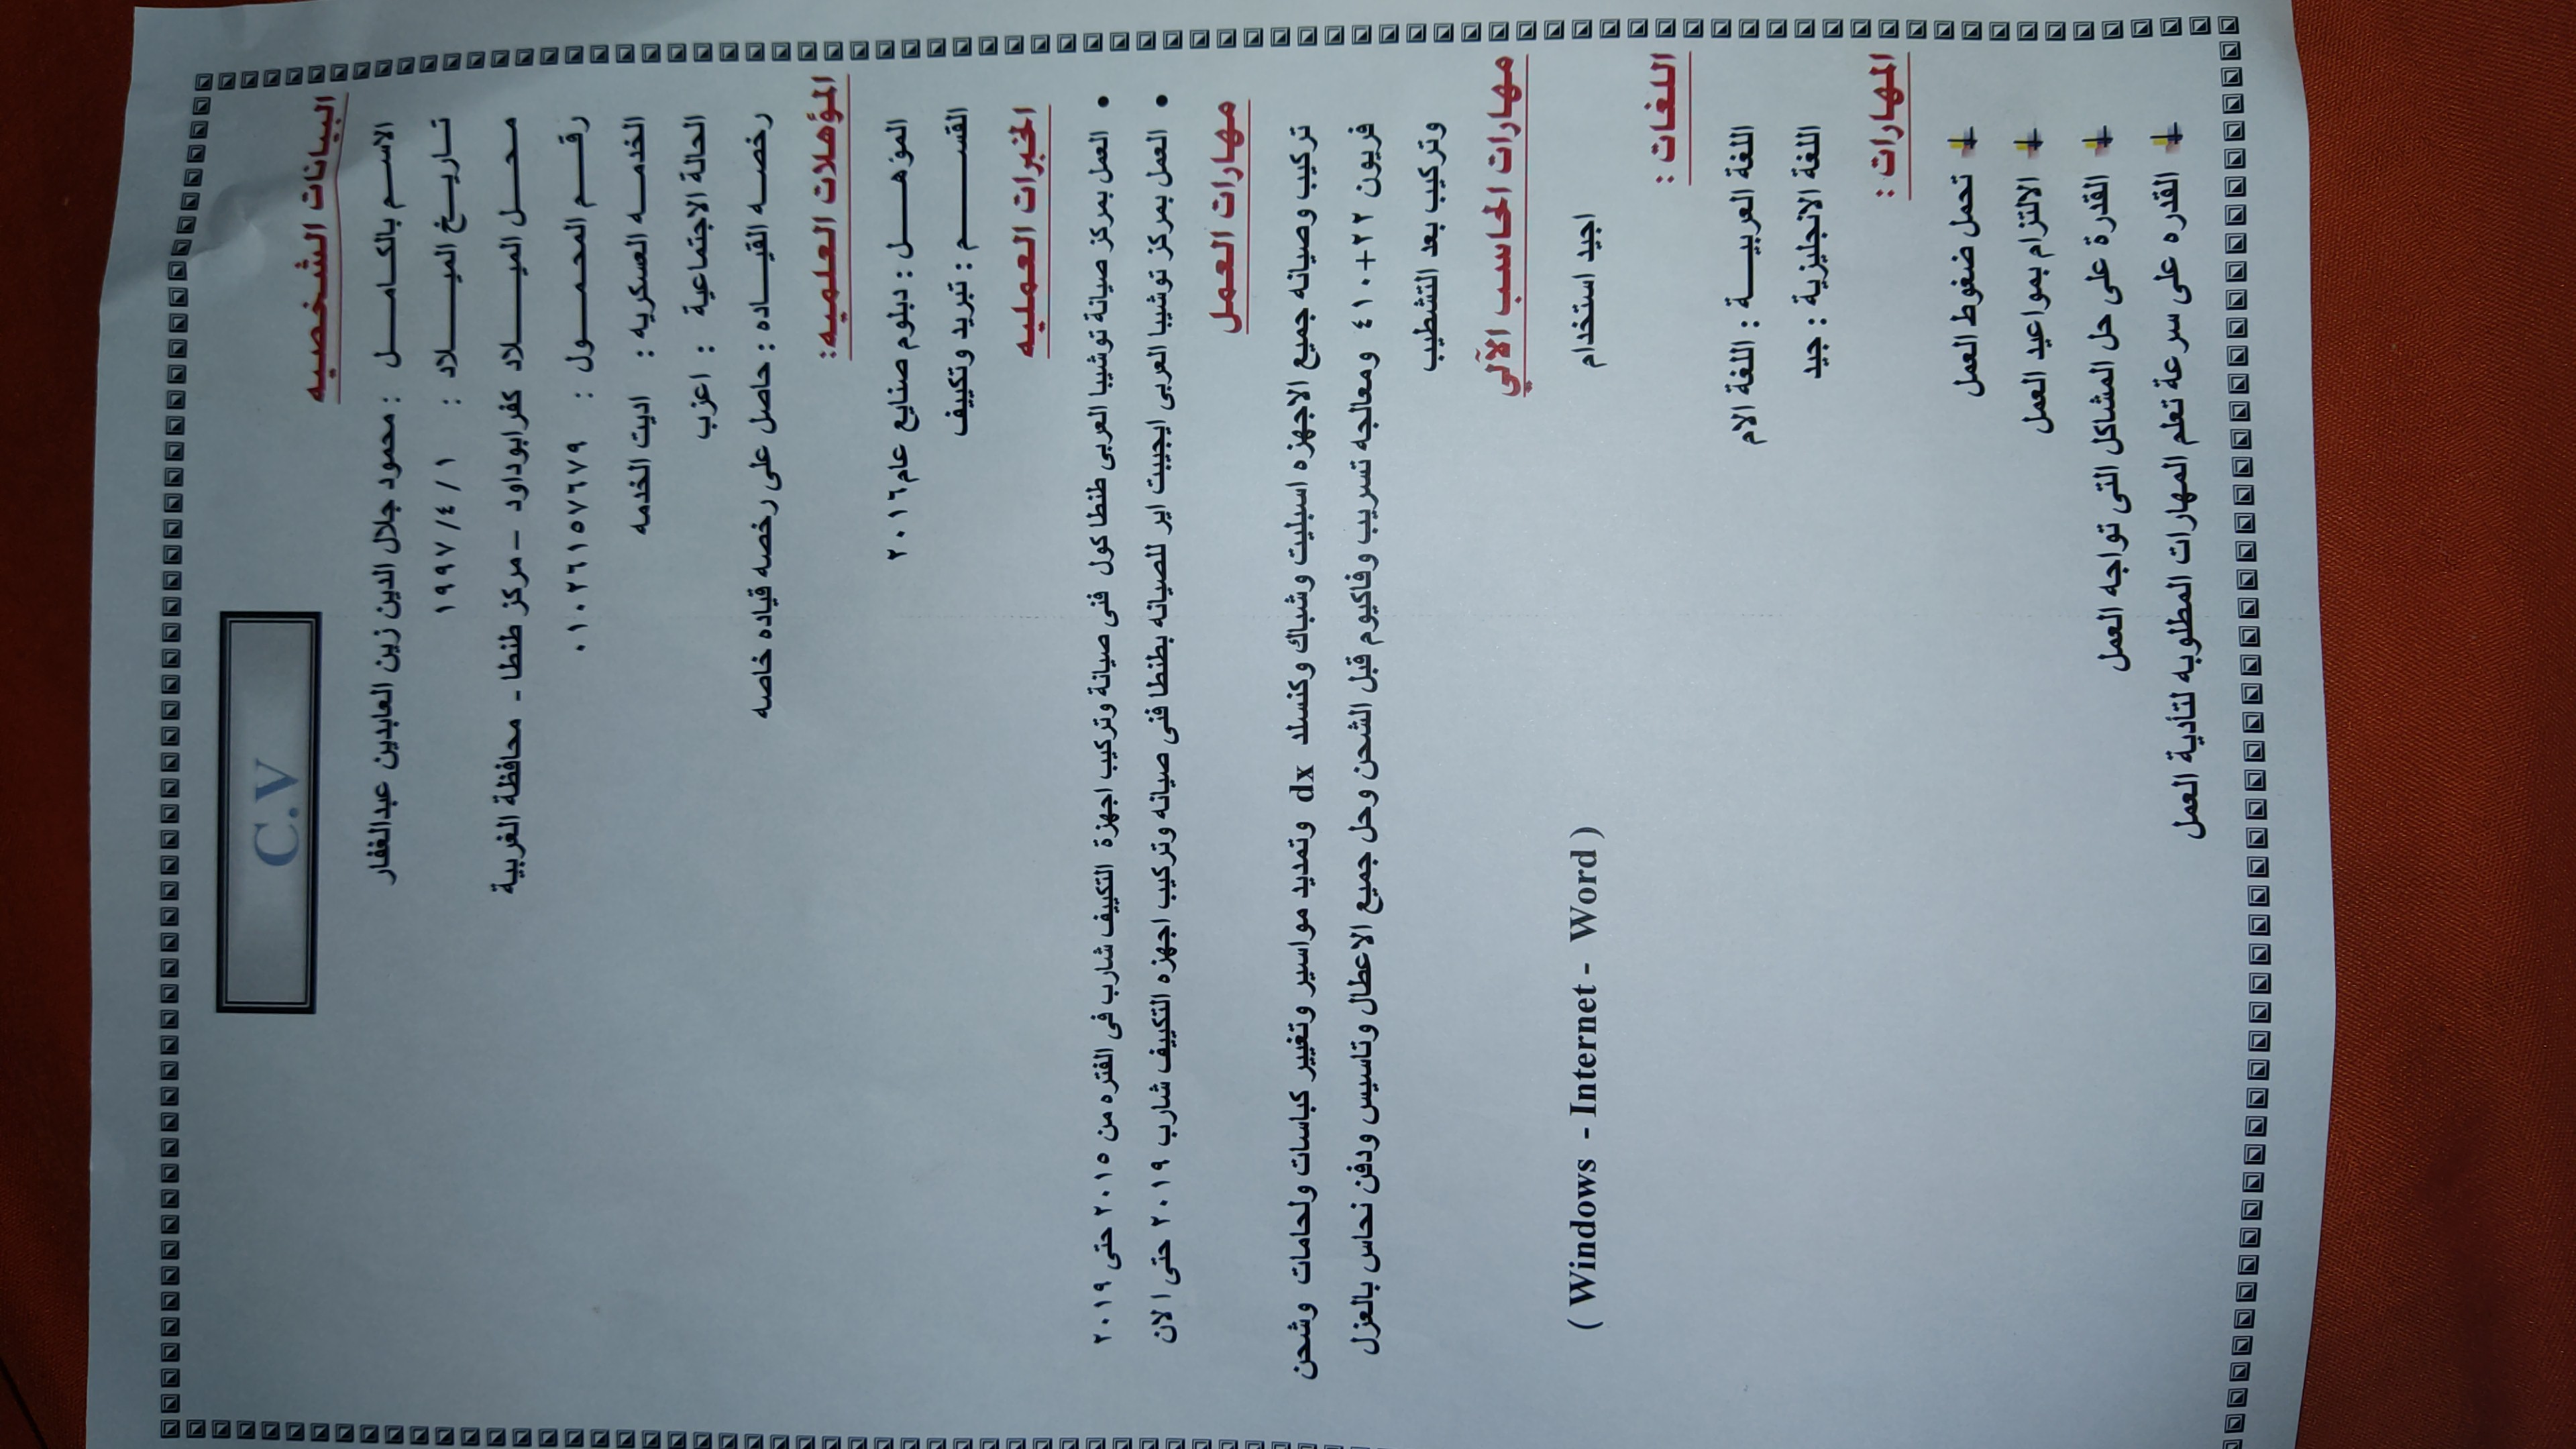 C.V
البيانات الشخصيه
الاسم بالكامل : محمود جلال الدين زين العابدين عبدالغفار
تاريخ الميلاد : ١ / ٤ / ١٩٩٧
محل الميلاد كفرابوداود – مركز طنطا - محافظة الغربية
رقم المحمول : ٠١٠٢٦١٥٧٦٧٩
الخدمه العسكريه : اديت الخدمه
الحالة الاجتماعية : اعزب
رخصه القياده : حاصل على رخصه قياده خاصه
المؤهلات العلميه:
المؤهل : دبلوم صنايع عام٢٠١٦
القسم : تبريد وتكييف
الخبرات العمليه
• العمل بمركز صيانة توشيبا العربى طنطا كول فنى صيانة وتركيب اجهزة التكييف شارب فى الفتره من ٢٠١٥ حتى ٢٠١٩
• العمل بمركز توشيبا العربى ايجيبت اير للصيانه بطنطا فنى صيانه وتركيب اجهزه التكييف شارب ٢٠١٩ حتى الان
مهارات العمل
تركيب وصيانه جميع الاجهزه اسبليت وشباك وكنسلد dx وتمديد مواسير وتغيير كباسات ولحامات وشحن
فريون ٢٢+٤١٠ ومعالجه تسريب وفاكيوم قبل الشحن وحل جميع الاعطال وتاسيس ودفن نحاس بالعزل
وتركيب بعد التشطيب
مهارات الحاسب الآلي
اجيد استخدام ( Windows - Internet - Word )
اللغات :
اللغة العربية : اللغة الام
اللغة الانجليزية : جيد
المهارات :
تحمل ضغوط العمل
الالتزام بمواعيد العمل
القدرة على حل المشاكل التى تواجه العمل
القدره على سرعة تعلم المهارات المطلوبه لتأدية العمل